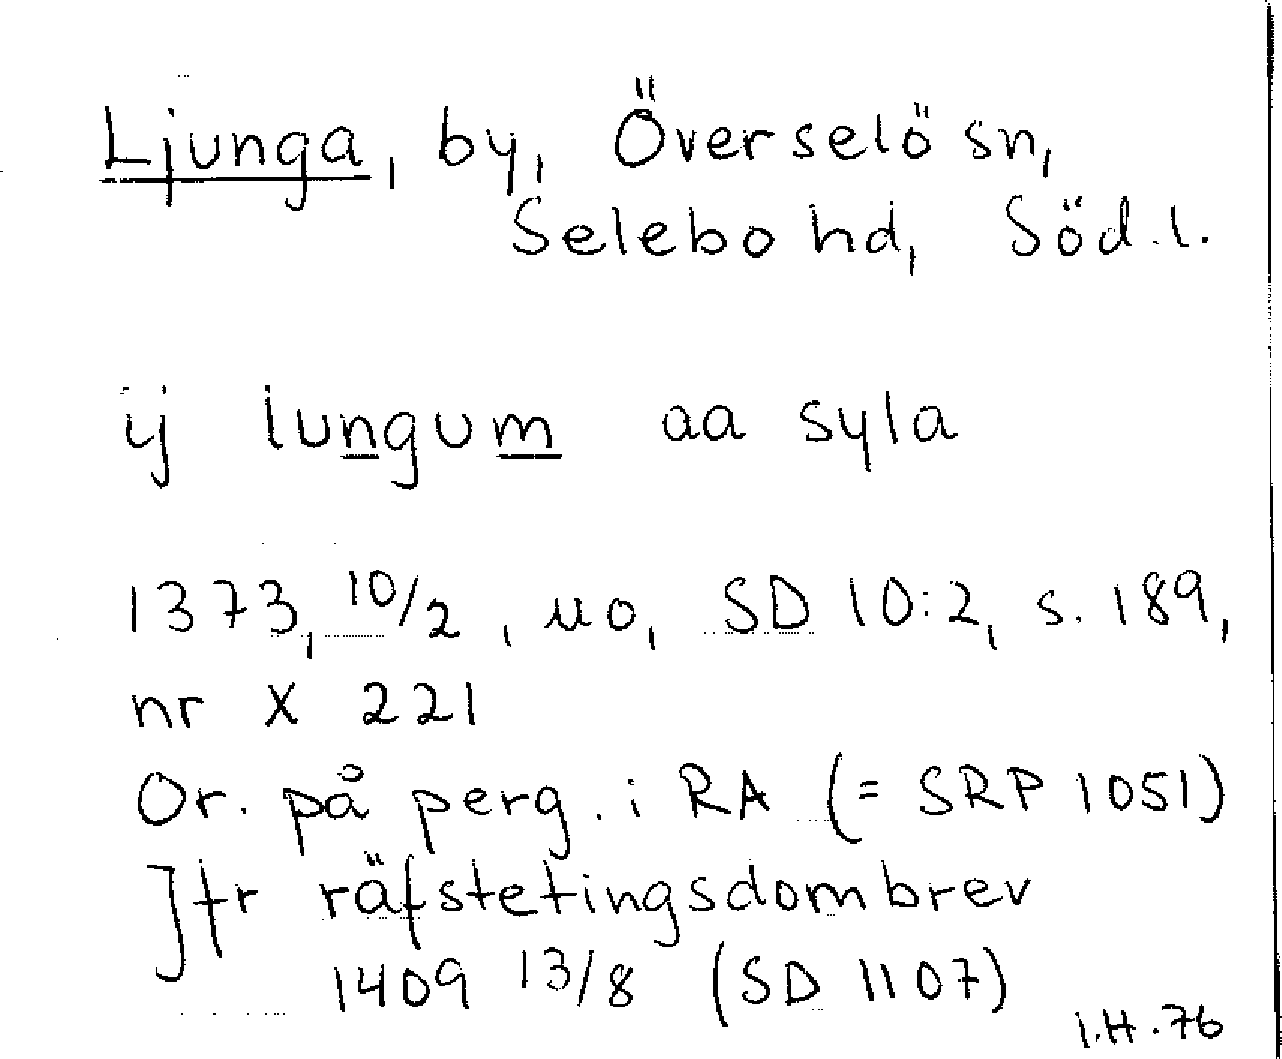 Ljunga, by, Överselö sn,
Selebo hd, Söd.l.
ij lungum aa syla
1373, 10/2, uo, SD 10:2, s. 189,
nr X 221
Or. på perg. i RA (= SRP 1051)
Jfr räfstetingsdombrev
1409 13/8 (SD 1107)
I.H.76